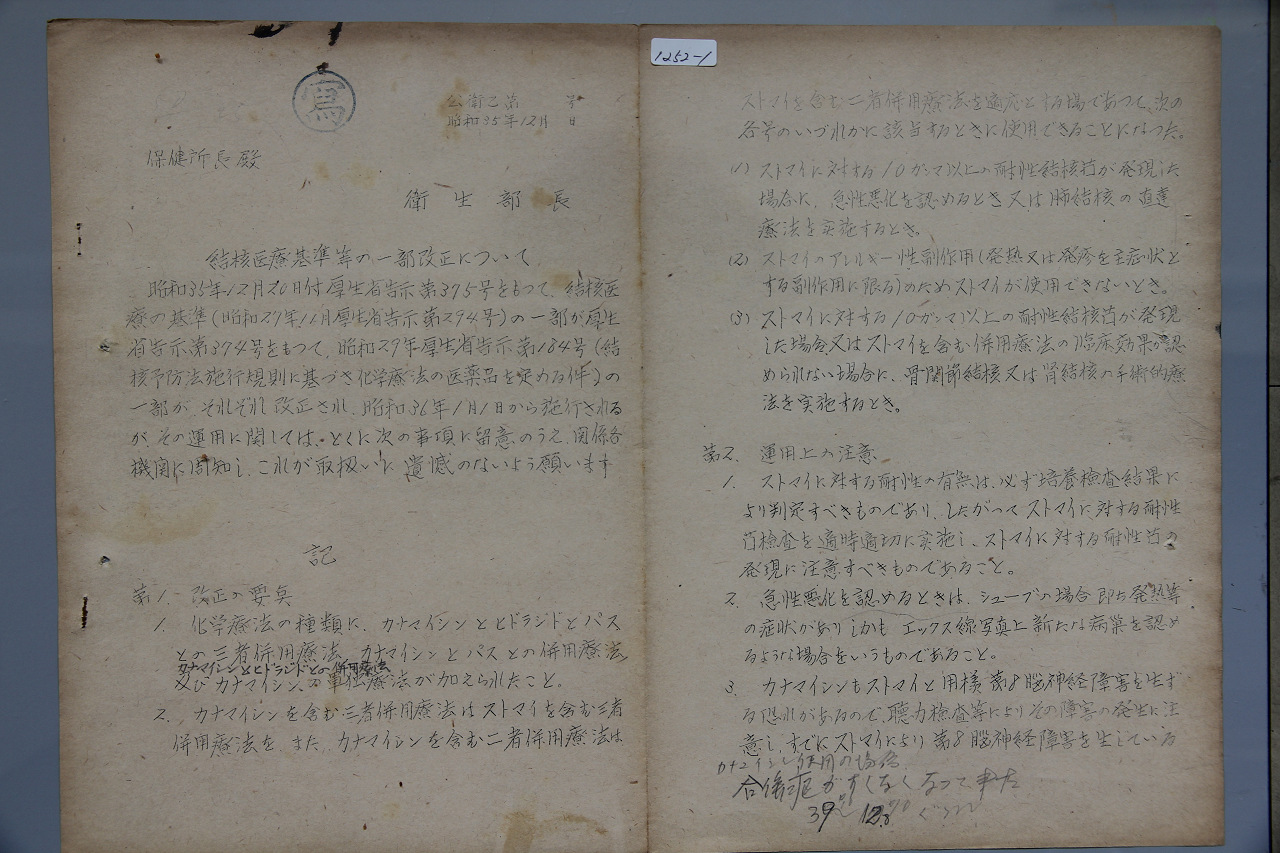 寫
公衛乙第　　号
昭和35年12月　日
保健所長殿
衛生部長
結核医療基準等の一部改正について
昭和35年12月20日付厚生省告示第395号をもつて、結核医
療の基準(昭和27年11月厚生省告示第294号)の一部が厚生
省告示第394号をもつて、昭和29年厚生省告示第184号(結
核予防法施行規則に基づき化学療法の医薬品を定める件)の
一部が、それぞれ改正され、昭和36年1月1日から施行される
が、その運用に関しては、とくに次の事項に留意のうえ、関係各
機関に周知し、これが取扱いに遺憾のないよう願います
記
第1. 改正の要点
1. 化学療法の種類に、カナマイシンとヒドラジドとパス
との三者併用療法、カナマイシンとパスとの併用療法、
カナマイシンとヒドラジドとの併用療法
及びカナマイシンの単独療法が加えられたこと。
2. カナマイシンを含む三者併用療法はストマイを含む三者
併用療法を、また、カナマイシンを含む二者併用療法は
1252-1
ストマイを含む二者併用療法を適応とする場であつて、次の
各号のいづれかに該当するときに使用できることになつた。
(1) ストマイに対する10ガンマ以上の耐性結核菌が発現した
場合に、急性悪化を認めるとき又は肺結核の直達
療法を実施するとき。
(2) ストマイのアレルギー性副作用(発熱又は発疹を主症状と
する副作用に限る)のためストマイが使用できないとき。
(3) ストマイに対する10ガンマ以上の耐性結核菌が発現
した場合又はストマイを含む併用療法の臨床効果が認
められない場合に、骨関節結核又は腎結核の手術的療
法を実施するとき。
第2. 運用上の注意
1. ストマイに対する耐性の有無は、必ず培養検査結果に
より判定すべきものであり、したがつてストマイに対する耐性
菌検査を適時適切に実施し、ストマイに対する耐性菌の
発現に注意すべきものであること。
2. 急性悪化を認めるときは、シューブの場合即ち発熱等
の症状がありしかも エックス線写真上新たな病巣を認め
るような場合をいうものであること。
3. カナマイシンもストマイと同様第8脳神経障害を生ず
る恐れがあるので、聴力検査等によりその障害の発生に注
意し、すでにストマイにより第8脳神経障害を生じている
カナマイシン使用の場合
合併症がすくなくなつて来た
39